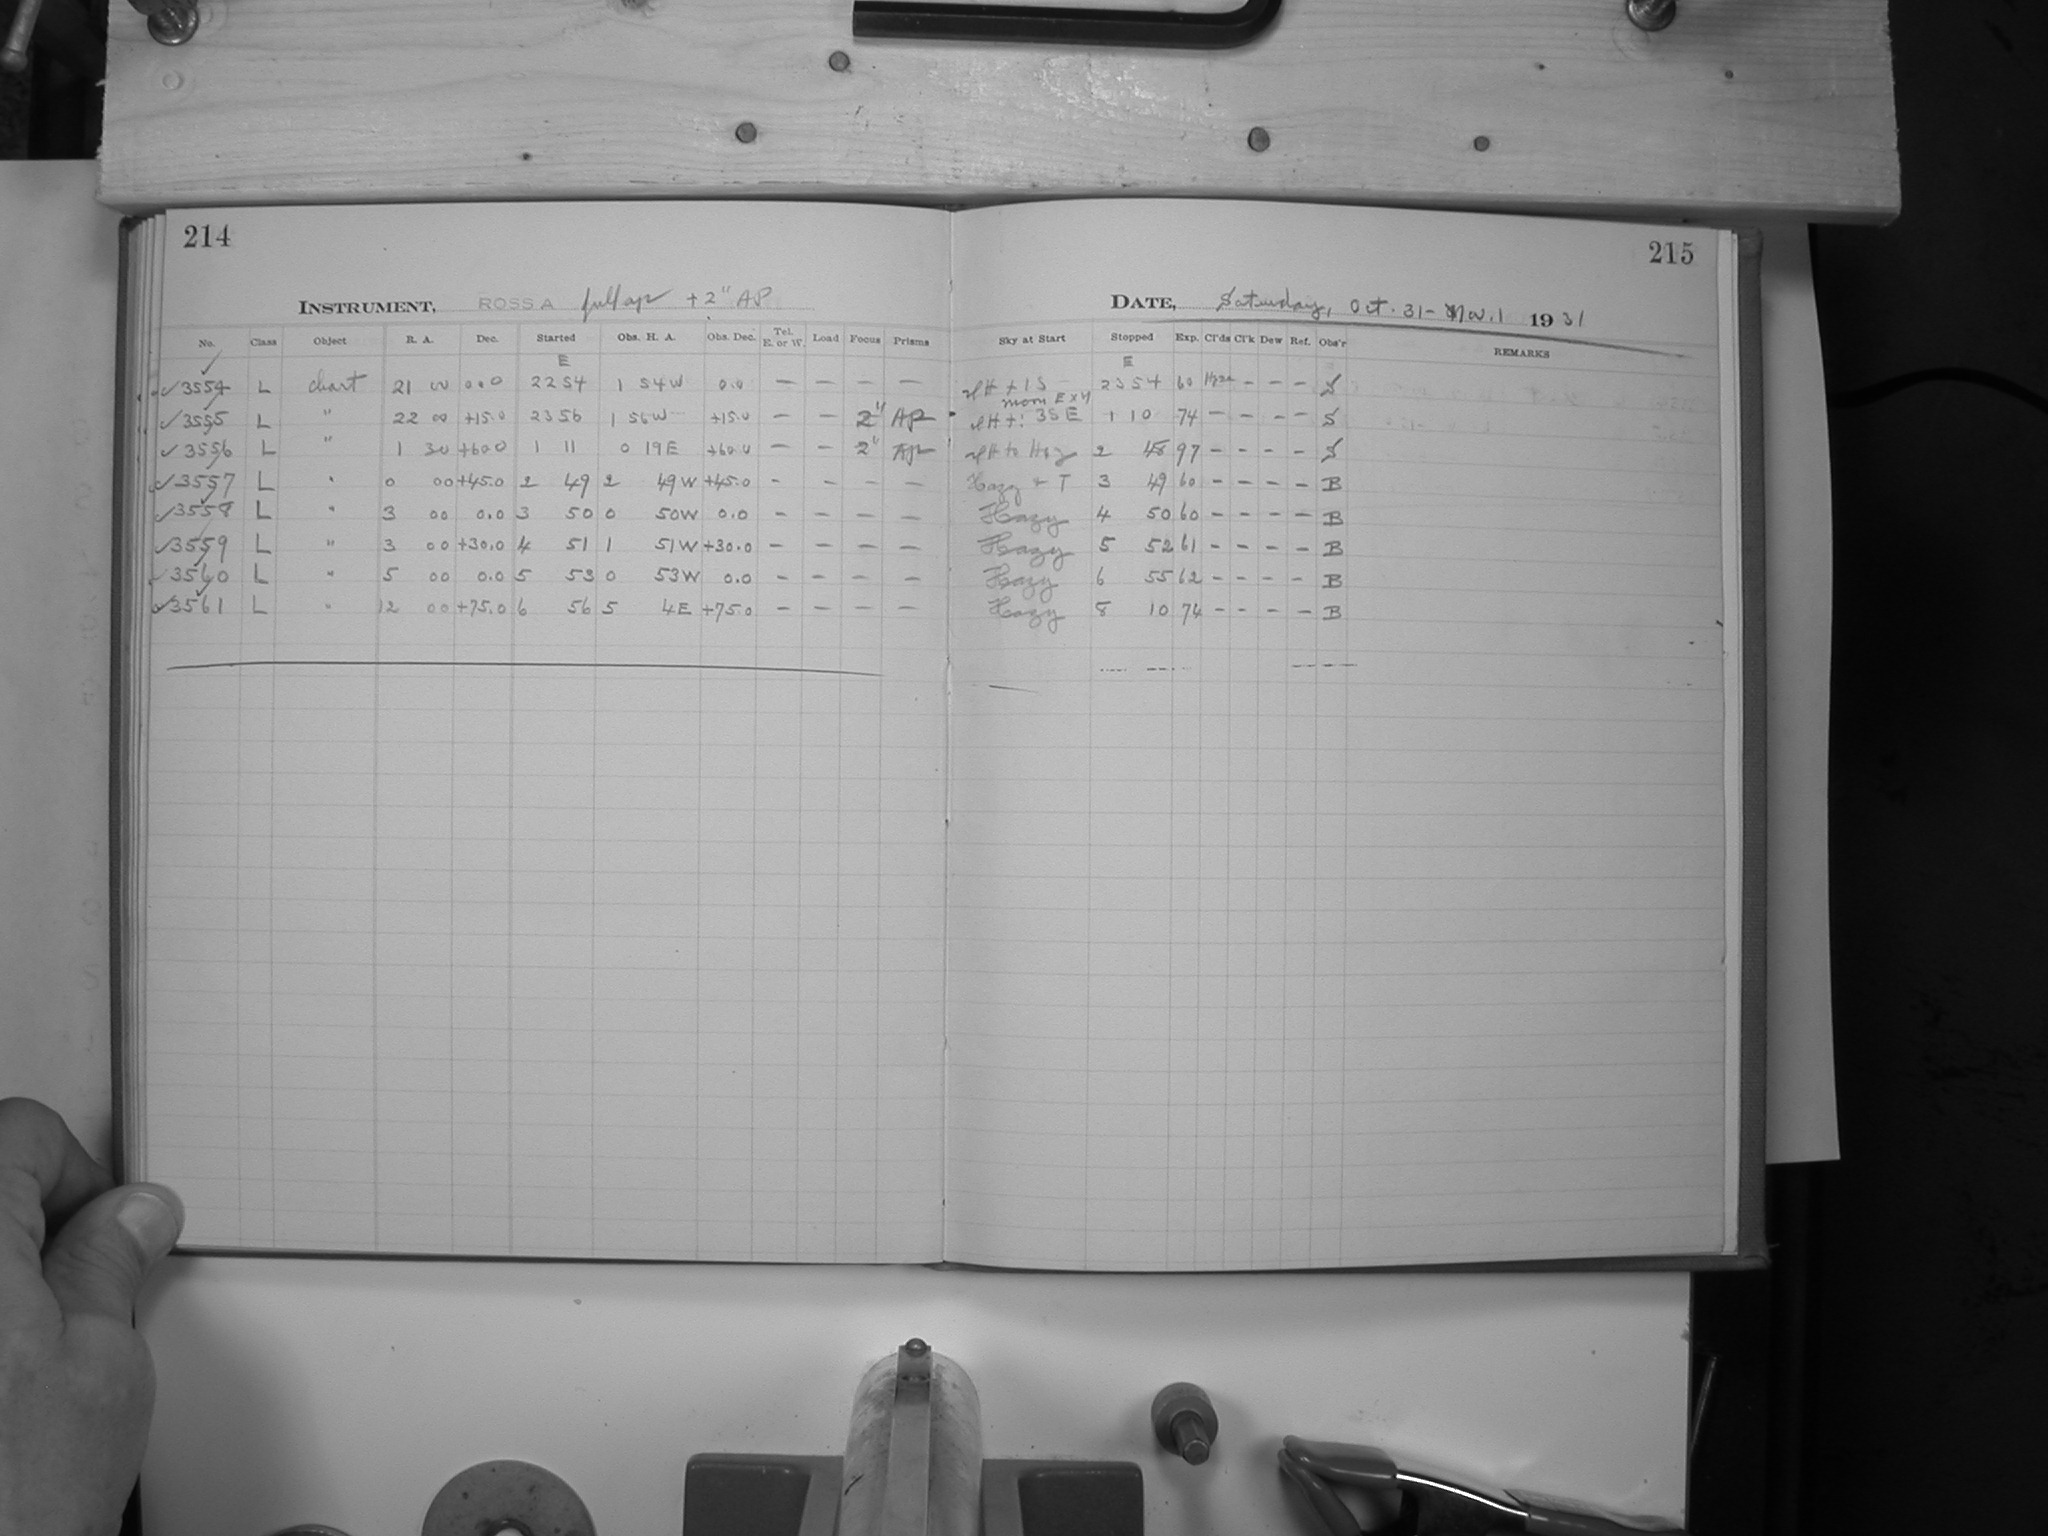 214
215
INSTRUMENT, ROSS A full ap + 2" AP
DATE, Saturday, Oct. 31 - Nov. 1 1931
No. Class Object R. A. Dec. Started Obs. H. A. Obs. Dec. Tel. E. or W. Load Focus Prisms Sky at Start Stopped Exp. Cl'ds Cl'k Dew Ref. Obs'r REMARKS
E E
✓3554 L chart 21 00 0.0 22 54 1 54W 0.0 — — — — + 1 S 23 54 60 Haze - - - S
moon E x 4
✓3555 L " 22 00 +15.0 23 56 1 56W +15.0 — — 2" AP 3S E 1 10 74 - - - - S
✓3556 L " 1 30 +60.0 1 11 0 19E +60.0 — — 2" AP to Hzy 2 48 97 - - - - S
✓3557 L " 0 00 +45.0 2 49 2 49W +45.0 - - - - Hazy + T 3 49 60 - - - - B
✓3558 L " 3 00 0.0 3 50 0 50W 0.0 - - - - Hazy 4 50 60 - - - - B
✓3559 L " 3 00 +30.0 4 51 1 51W +30.0 - - - - Hazy 5 52 61 - - - - B
✓3560 L " 5 00 0.0 5 53 0 53W 0.0 - - - - Hazy 6 55 62 - - - - B
✓3561 L " 12 00 +75.0 6 56 5 4E +75.0 - - - - Hazy 8 10 74 - - - - B